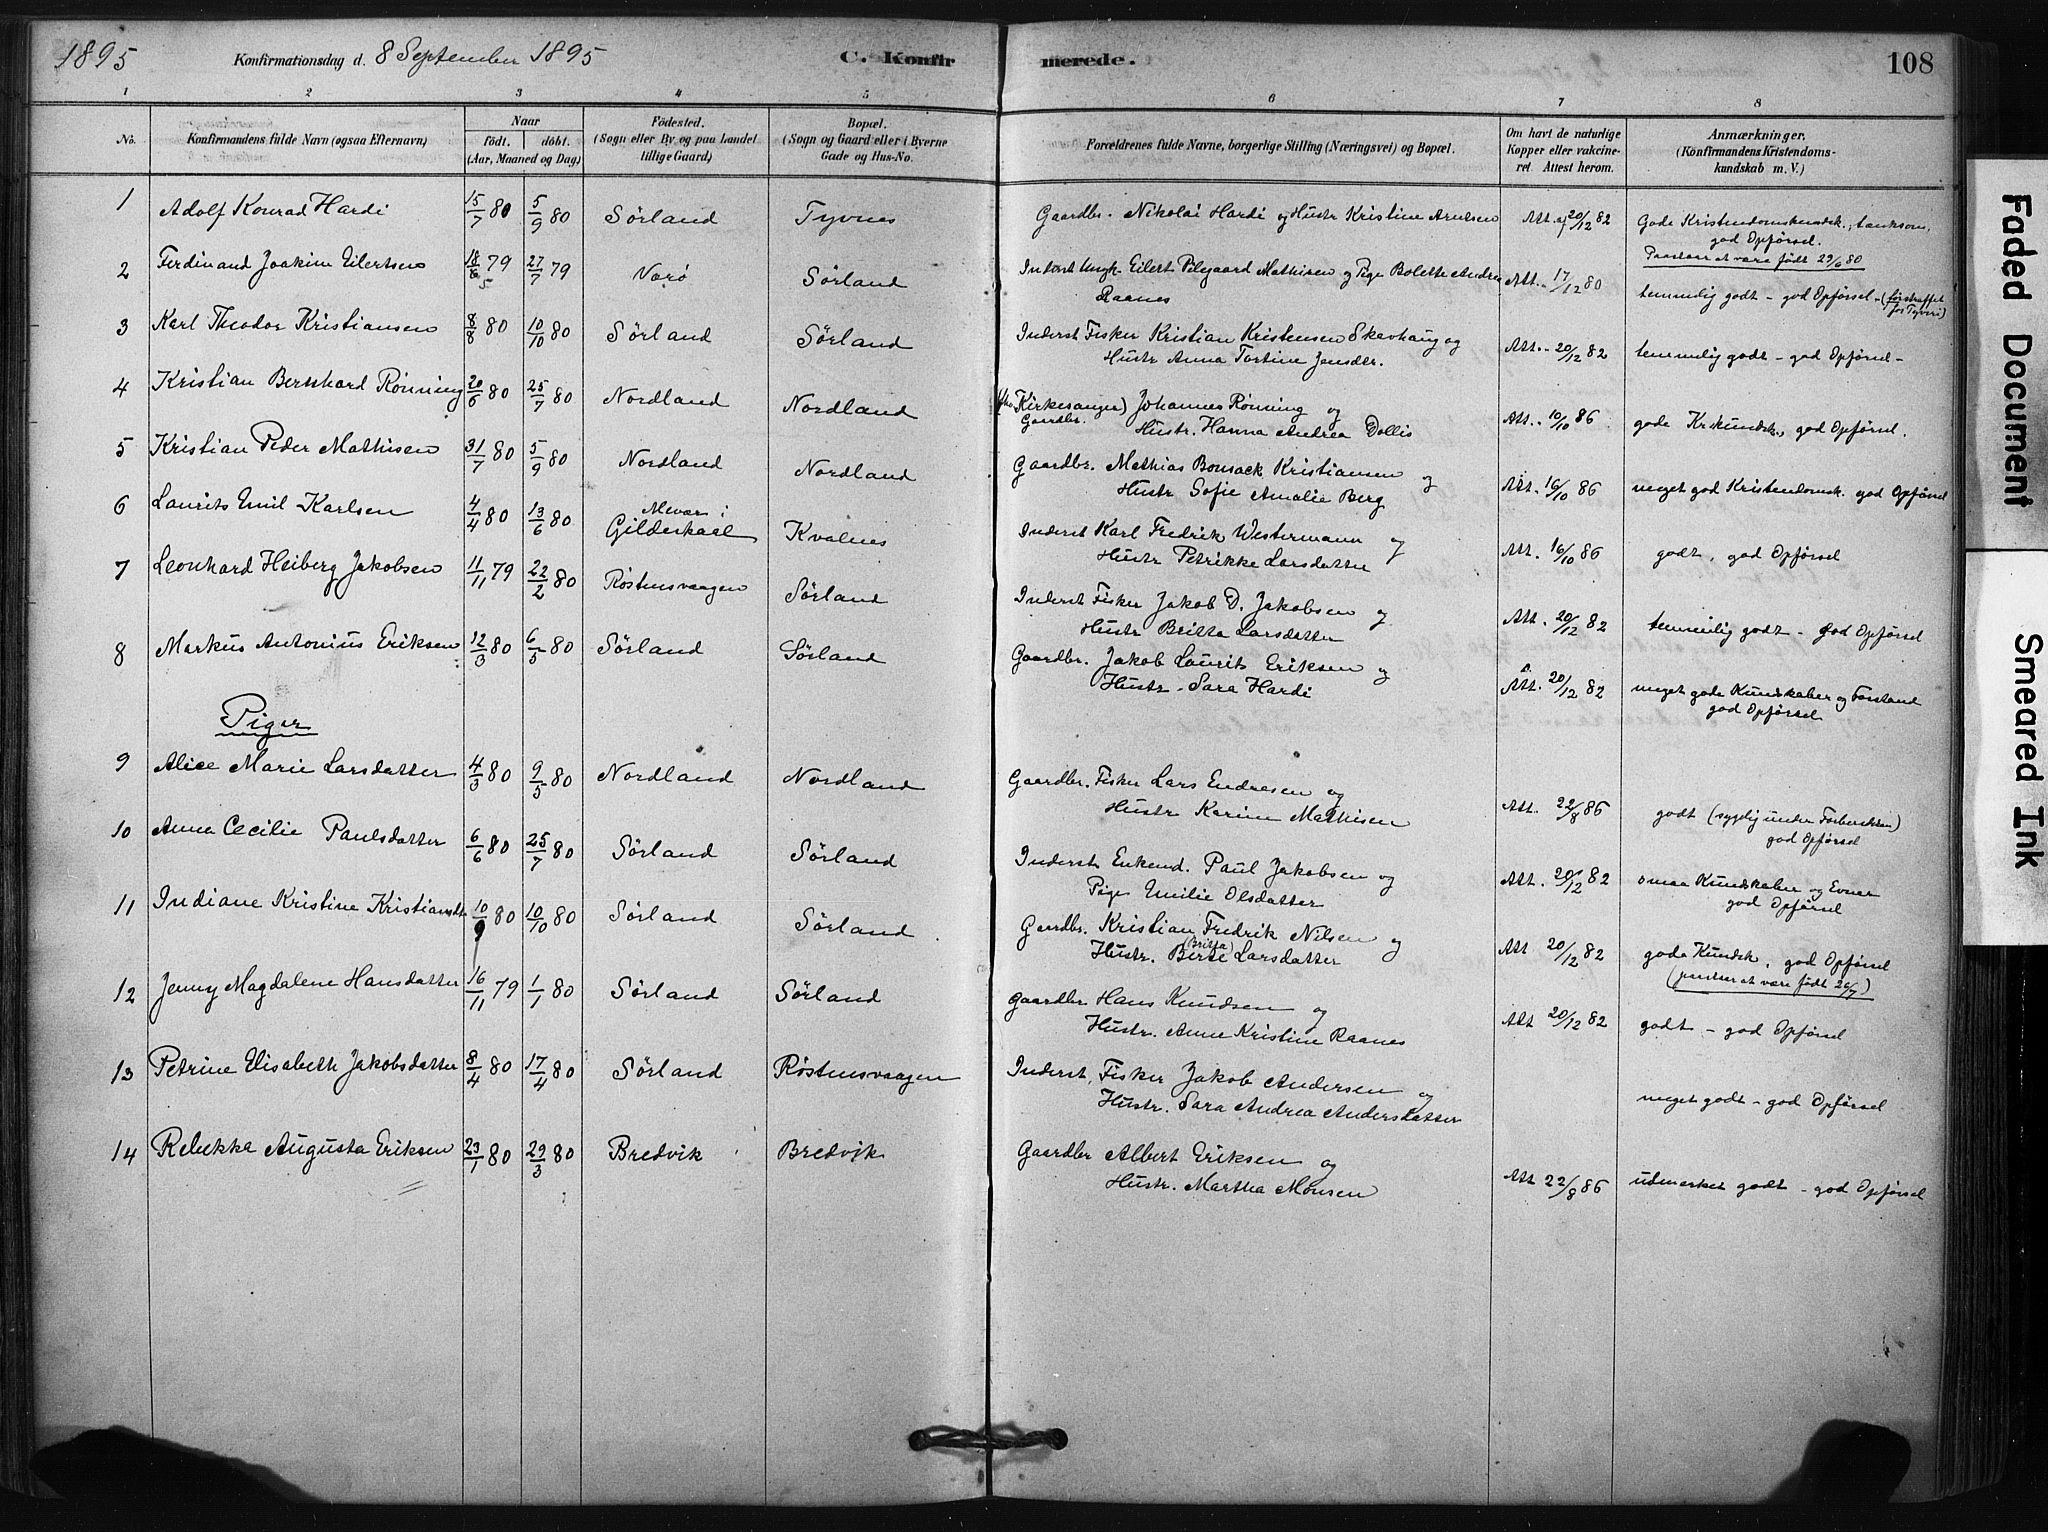 1895
Konfirmationsdag d. 8 September 1895
C. Konfirmerede.
108
1 2 3 4 5 6 7 8
No.
Konfirmandens fulde Navn (ogsaa Efternavn)
Naar
født. døbt.
(Aar, Maaned og Dag)
Fødested.
(Sogn eller By og paa Landet
tillige Gaard)
Bopæl.
(Sogn og Gaard eller i Byerne
Gade og Hus-No.
Forældrenes fulde Navne, borgerlige Stilling (Næringsvei) og Bopæl.
Om havt de naturlige
Kopper eller vakcine-
ret Attest herom.
Anmærkninger.
(Konfirmandens Kristendoms-
kundskab m. V.)
1 Adolf Konrad Hardi 15/7 80 5/9 80 Sörland Tyvnes Gaardbr. Nikolai Hardi og Hustr Kristine Arntsen Att. 20/12 82 Gode Kristendomskundsk., tænksom,
god Opførsel.
2 Ferdinand Joakim Eilertsen 18/6 79 27/7 79 Værø Sörland Inderst Ungk. Eilert Pilegaard Mathisen og Pige Bolette Andrea
Raanes
Att. 17/12 80
Paastaar at være født 29/6 80
temmelig godt - god Opførsel - (før straffet
for Tyveri)
3 Karl Theodor Kristiansen 8/8 80 10/10 80 Sörland Sörland Inderst Fisker Kristian Kristensen Skevhaug og
Hustr Anna Tortine Jensdr.
Att. 20/12 82 temmelig godt - god Opførsel -
4 Kristian Bernhard Rönning 20/6 80 25/7 80 Nordland Nordland (fhv Kirkesanger) Johannes Rønning og
Gaardbr. Hustr. Hanna Andrea Dollis
Att. 10/10 86 gode Kr.kundsk., god Opførsel.
5 Kristian Peder Mathisen 31/7 80 5/9 80 Nordland Nordland Gaardbr. Mathias Bonsack Kristiansen og
Hustr Sofie Amalie Berg
Att. 16/10 86 meget god Kristendomsk. god Opførsel
6 Laurits Emil Karlsen 4/4 80 13/6 80 Alvær i
Gildeskaal Kvalnes Inderst Karl Fredrik Westermann og
Hustr Petrikke Larsdatter
Att. 16/10 86 godt, god Opførsel
7 Leonhard Heiberg Jakobsen 11/11 79 22/2 80 Røstnesvaagen Sörland Inderst Fisker Jakob D. Jakobsen og
Hustr Britta Larsdatter
Att. 20/12 82 temmelig godt - god Opførsel
8 Markus Antonius Eriksen 12/3 80 6/5 80 Sörland Sörland Gaardbr. Jakob Laurits Eriksen og
Hustr. Sara Hardi
Att. 20/12 82 meget gode Kundskaber og Forstand
god Opførsel
Piger
9 Alice Marie Larsdatter 4/3 80 9/5 80 Nordland Nordland Gaardbr. Fisker Lars Endresen og
Hustr Karine Mathisen
Att. 22/8 86 godt (sygelig under Forberedelsen)
god Opførsel
10 Anna Cecilie Paulsdatter 6/6 80 25/7 80 Sörland Sörland Inderst Enkemd. Paul Jakobsen og
Pige Emilie Olsdatter
Att. 20/12 82 smaa Kundskaber og Evner
god Opførsel
11 Indiane Kristine Kristiansdt. 10/9 80 10/10 80 Sörland Sörland Gaardbr. Kristian Fredrik Nilsen og
Hustr. Berte (Britta) Larsdatter
Att 20/12 82 gode Kundsk. god Opførsel
(paastaar at være født 20/7)
12 Jenny Magdalene Hansdatter 16/11 79 1/1 80 Sörland Sörland Gaardbr Hans Knudsen og
Hustr. Anne Kristine Raanes
Att 20/12 82 godt - god Opførsel
13 Petrine Elisabeth Jakobsdatter 8/4 80 17/4 80 Sörland Røstnesvaagen Inderst, Fisker Jakob Andersen og
Hustr. Sara Andrea Andersdatter
meget godt - god Opførsel
14 Rebekka Augusta Eriksen 23/1 80 29/3 80 Bredvik Bredvik Gaardbr Albert Eriksen og
Hustr. Martha Monsen
Att 22/8 86 udmerket godt - god Opførsel
Faded Document
Smeared Ink